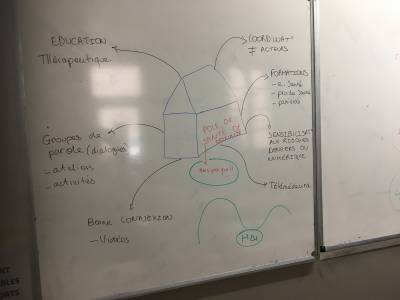 EDUCATION
Thérapeutique
COORDINAT°
≠ ACTEURS
FORMATIONS
- e.santé
- pro de santé
- patients
POLE DE
SANTÉ DE
SENSIBILISAT°
AUX RISQUES
DANGERS DU
NUMÉRIQUE
Groupes de
parole/dialogues
- ateliers
- activités
Télémédecine
Bonne CONNEXION
- Vidéos